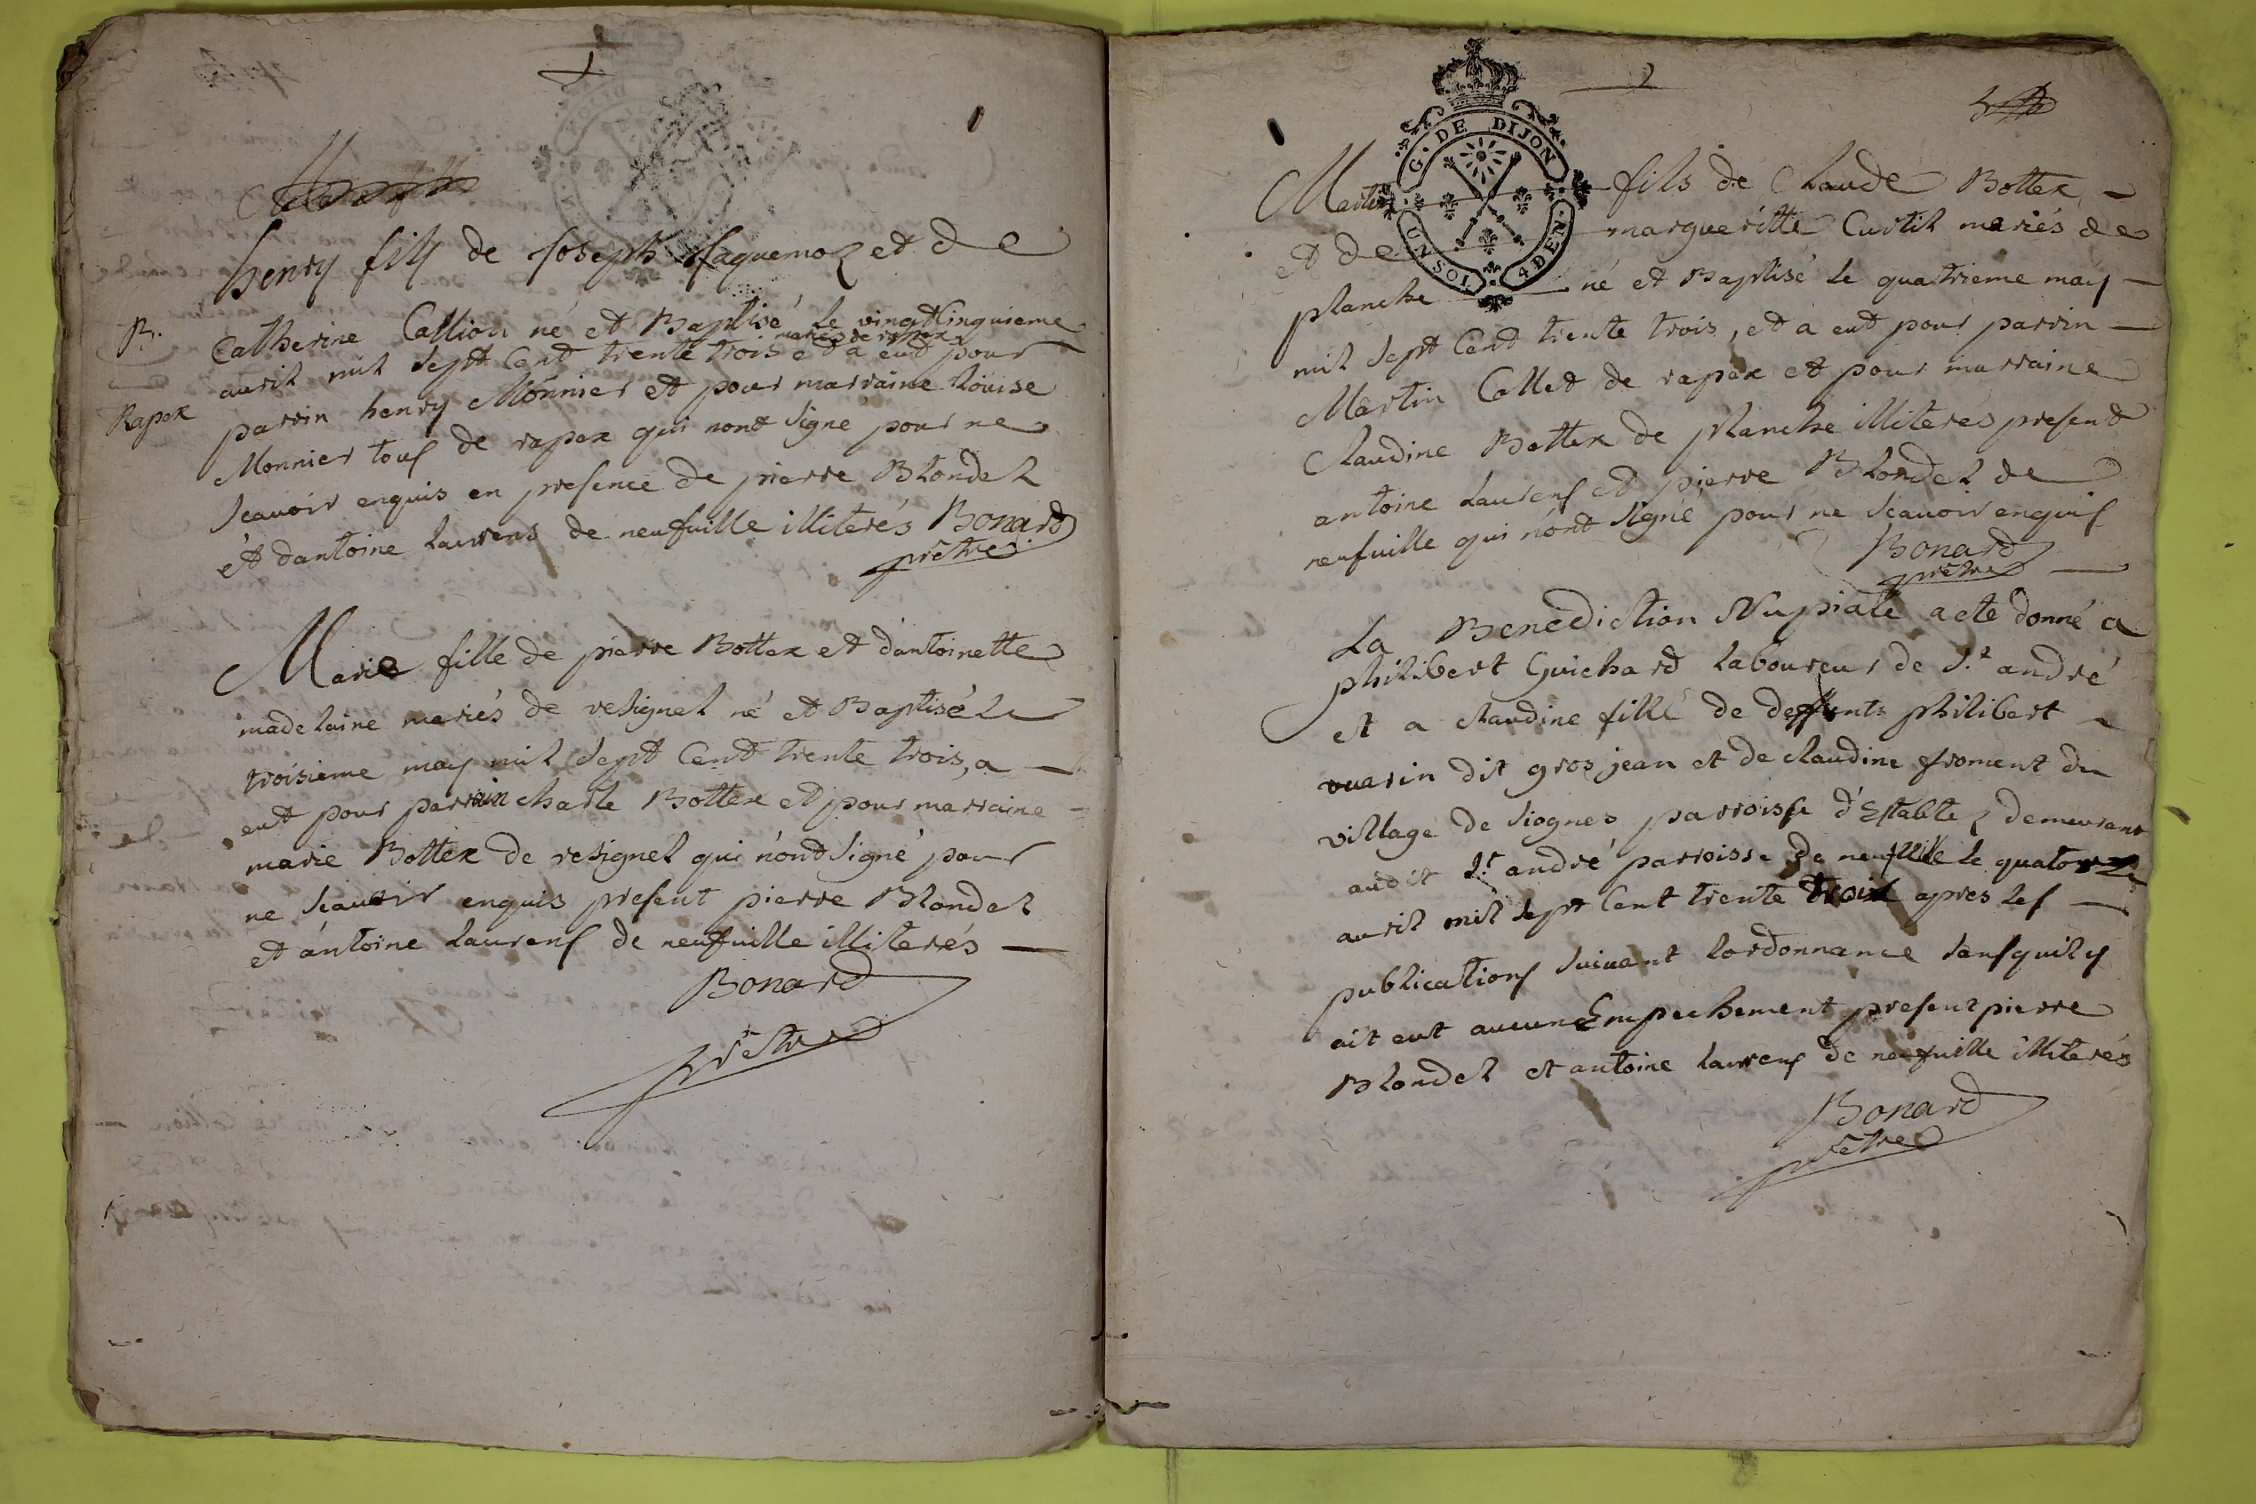 henry fils de Joseph Jaquemoz et de
B. Catherine Callion né et Baptisé le vingtcinquieme
mariés de rapex
auril mil sept Cent trente trois et a eut pour
Rapex
parrin henry Monnier et pour marraine Loüise
Monnier tous de rapex qui nont signé pour ne
scauoir enquis en presence de pierre Blondel
et dantoine Laurens de neufuille illiterés Bonard
prêtre
Marie fille de pierre Bottex et d'antoinette
madelaine mariés de resignel né et Baptisé le
troisieme may mil sept Cent trente trois, a
eut pour parrain charle Bottex et pour marraine
marie Bottex de resignel qui n'ont signé pour
ne scauoir enquis present pierre Blondel
et antoine Laurens de neufuille illiterés
Bonard
prêtre
2
G. DE DIJON
UN SOL 4 DEN.
Martin fils de Claude Bottex
et de margueritte Curtil mariés de
planche né et Baptisé le quatrieme may
mil sept Cent trente trois, et a eut pour parrin
Martin Collet de rapex et pour marraine
Claudine Bottex de planche illiterés present
antoine Laurens et pierre Blondel de
neufuille qui n'ont signé pour ne scauoir enquis
Bonard
prêtre
La Benediction Nupiale a ete donné a
philibert Guichard laboureur de St andré
et a claudine fille de deffunts philibert
vuarin dit gros jean et de claudine froment du
village de siognes parroisse d'Estables demeurant
audit St andré parroisse de neufuille le quatorze
auril mil sept Cent trente trois apres les
publications suiuant lordonnance sans quil y
ait eut aucun Empechement present pierre
Blondel et antoine Laurens de neufuille illiterés
Bonard
prêtre